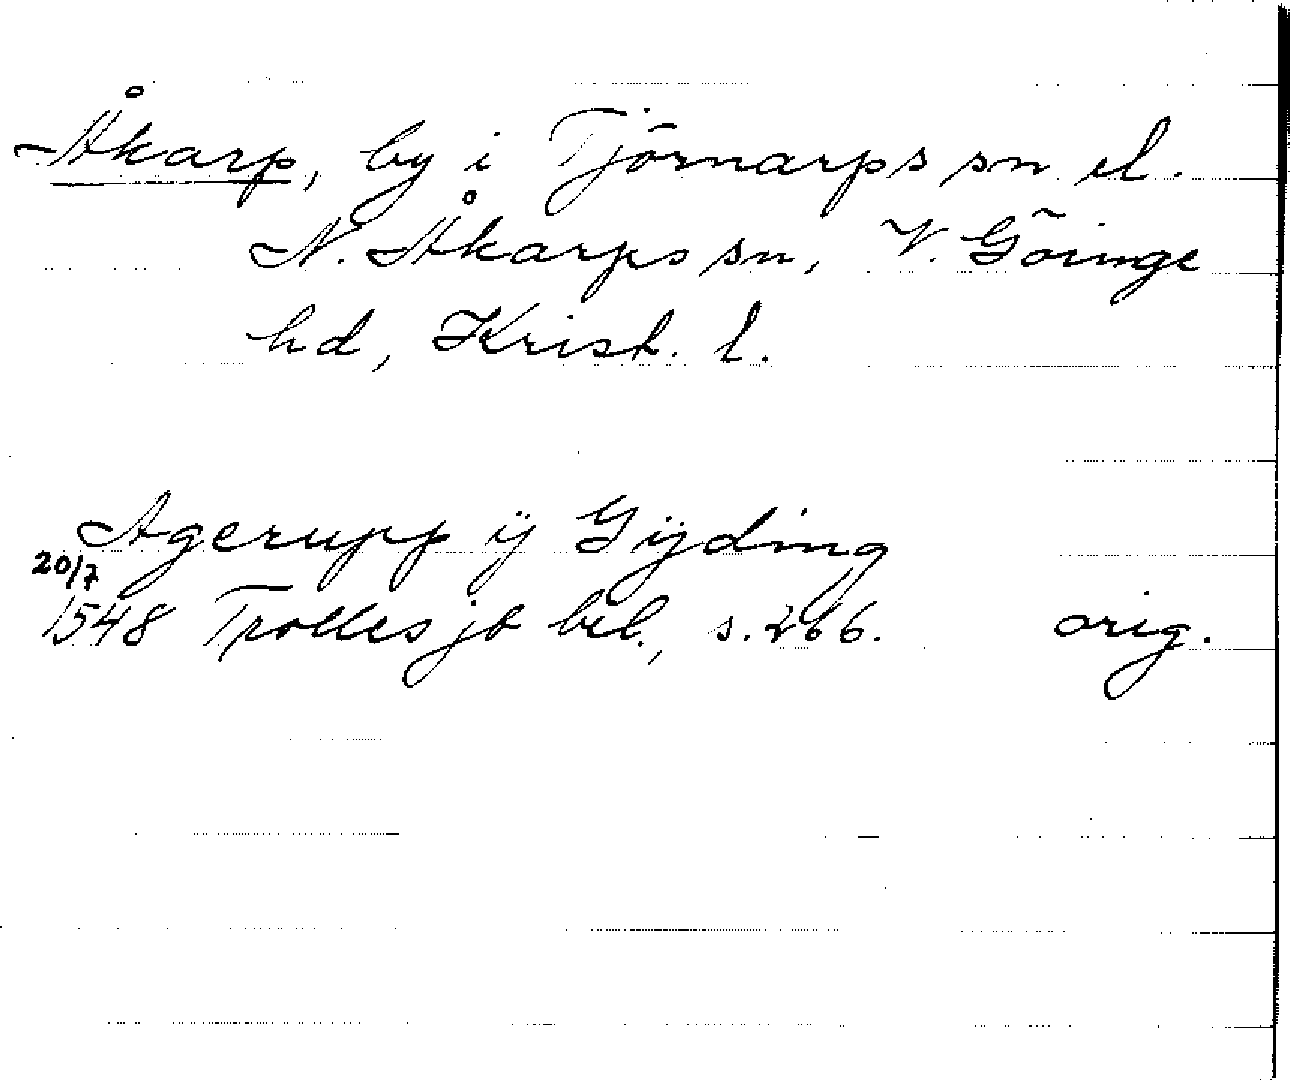 Åkarp, by i Tjörnarps sn el.
N. Åkarps sn, V. Göinge
hd, Krist. l.
Agerupp ÿ Gÿding
20/7
1548 Trolles jb bil., s. 266. orig.